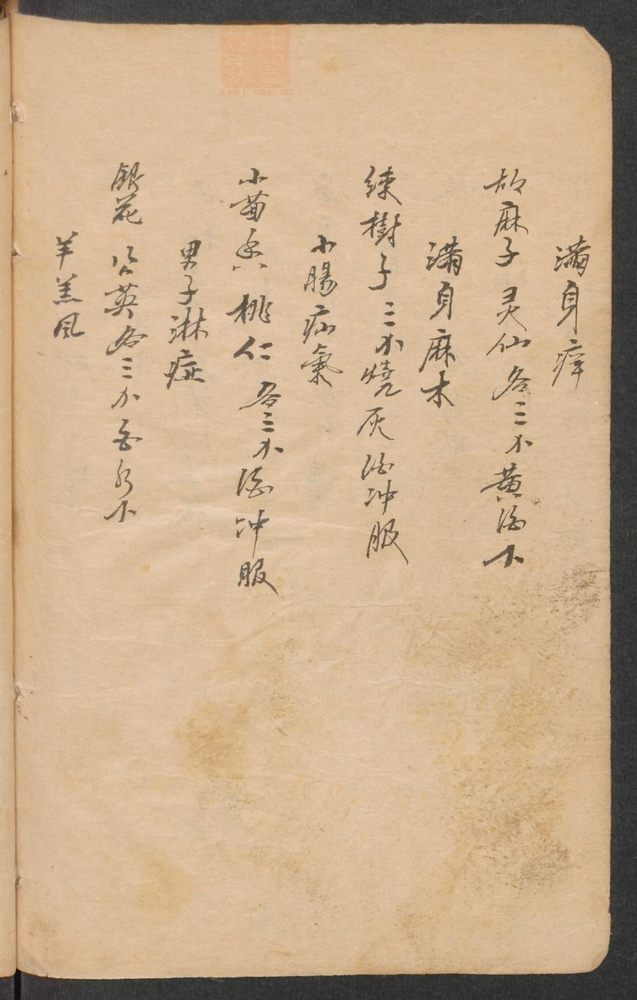 满身痒
胡麻子 灵仙各三小黄酒下
满身麻木
練樹子三小燒灰酒冲服
小腸疝氣
小茴香 桃仁 各三小酒冲服
男子淋症
銀花 公英各三小水下
羊羔风